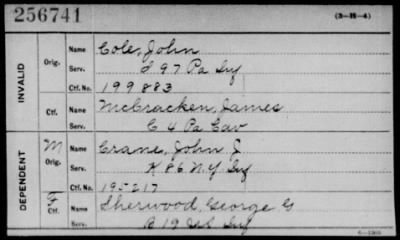 256741 (3-H-4)
INVALID
Orig. Name Cole, John
Serv. I 97 Pa Inf
Ctf. No. 199883
Ctf. Name McCracken, James
Serv. C 4 Pa Cav
DEPENDENT
M Orig. Name Crane, John J
Serv. K 86 N.Y. Inf
Ctf. No. 195217
Ctf. Name Sherwood, George G
Serv. B 19 Inf